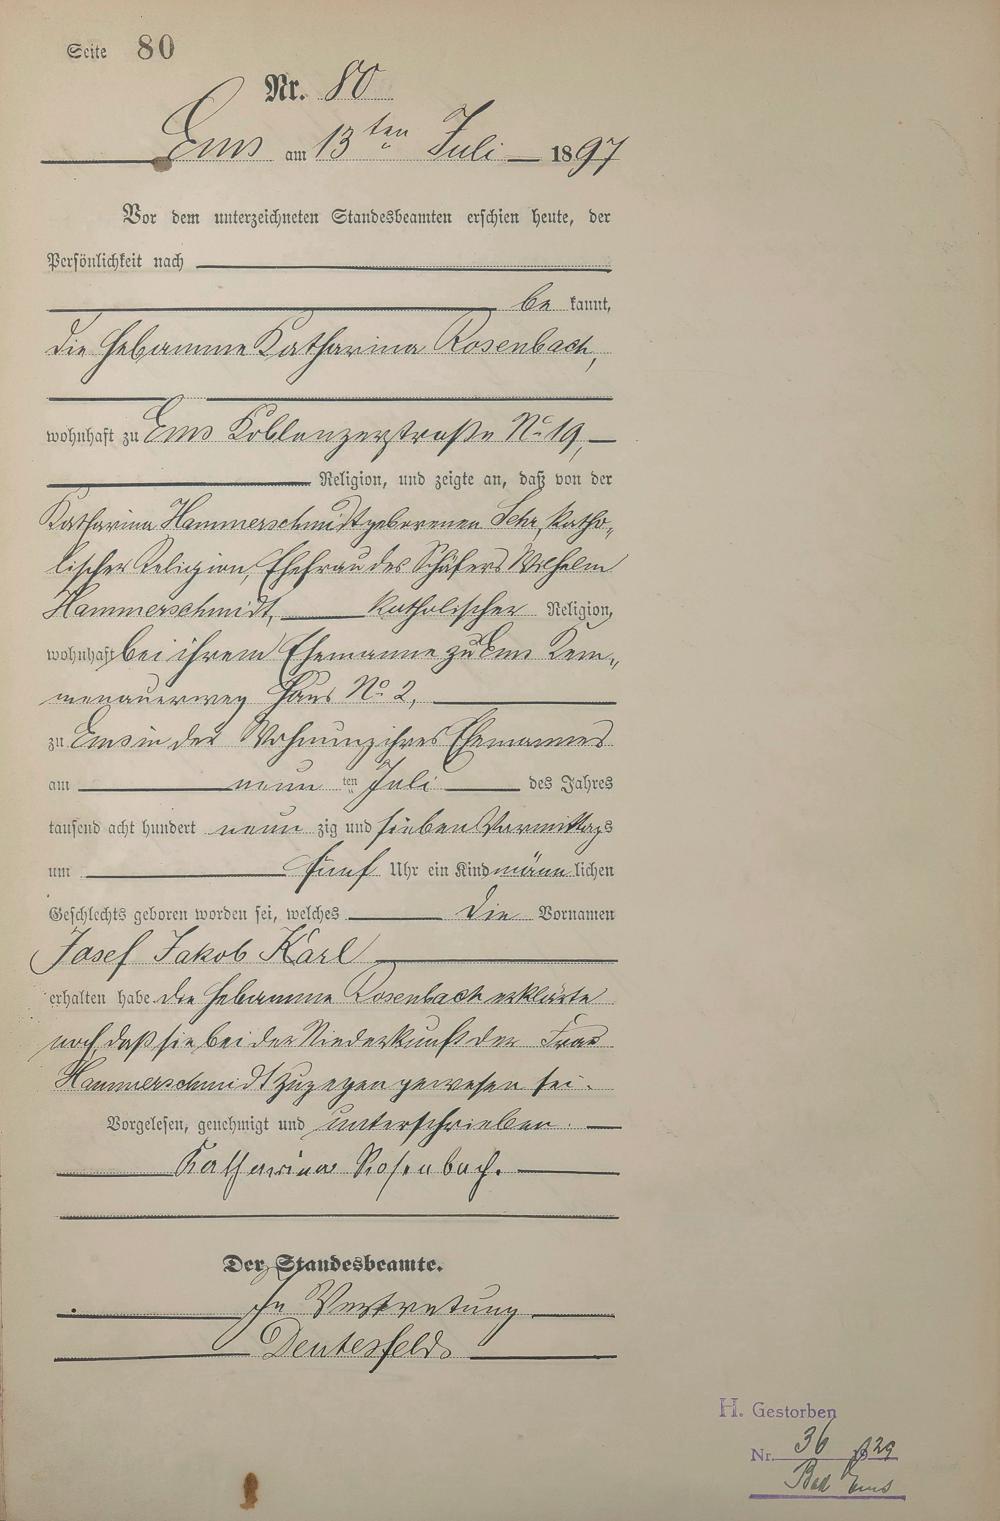 Seite 80
Nr. 80
Ems am 13ten Juli 1897
Vor dem unterzeichneten Standesbeamten erschien heute, der
Persönlichkeit nach
be kannt,
die Hebamme Katharina Rosenbach,
wohnhaft zu Ems Koblenzerstraße No 19,
Religion, und zeigte an, daß von der
Katharina Hammerschmidt geborenen Sehr, katho„
lischer Religion, Ehefrau des Schäfers Wilhelm
Hammerschmidt, katholischer Religion,
wohnhaft bei ihrem Ehemanne zu Ems Kem„
menauerweg Haus No 2,
zu Ems in der Wohnung ihres Ehemannes
am neun ten Juli des Jahres
tausend acht hundert neun zig und sieben Vormittags
um fünf Uhr ein Kind männ lichen
Geschlechts geboren worden sei, welches die Vornamen
Josef Jakob Karl
erhalten habe. die Hebamme Rosenbach erklärte
noch, daß sie bei der Niederkunft der Frau
Hammerschmidt zugegen gewesen sei.
Vorgelesen, genehmigt und unterschrieben.
Katharina Rosenbach.
Der Standesbeamte.
In Vertretung
Deutesfeld
H. Gestorben
Nr. 36 29
Bad Ems